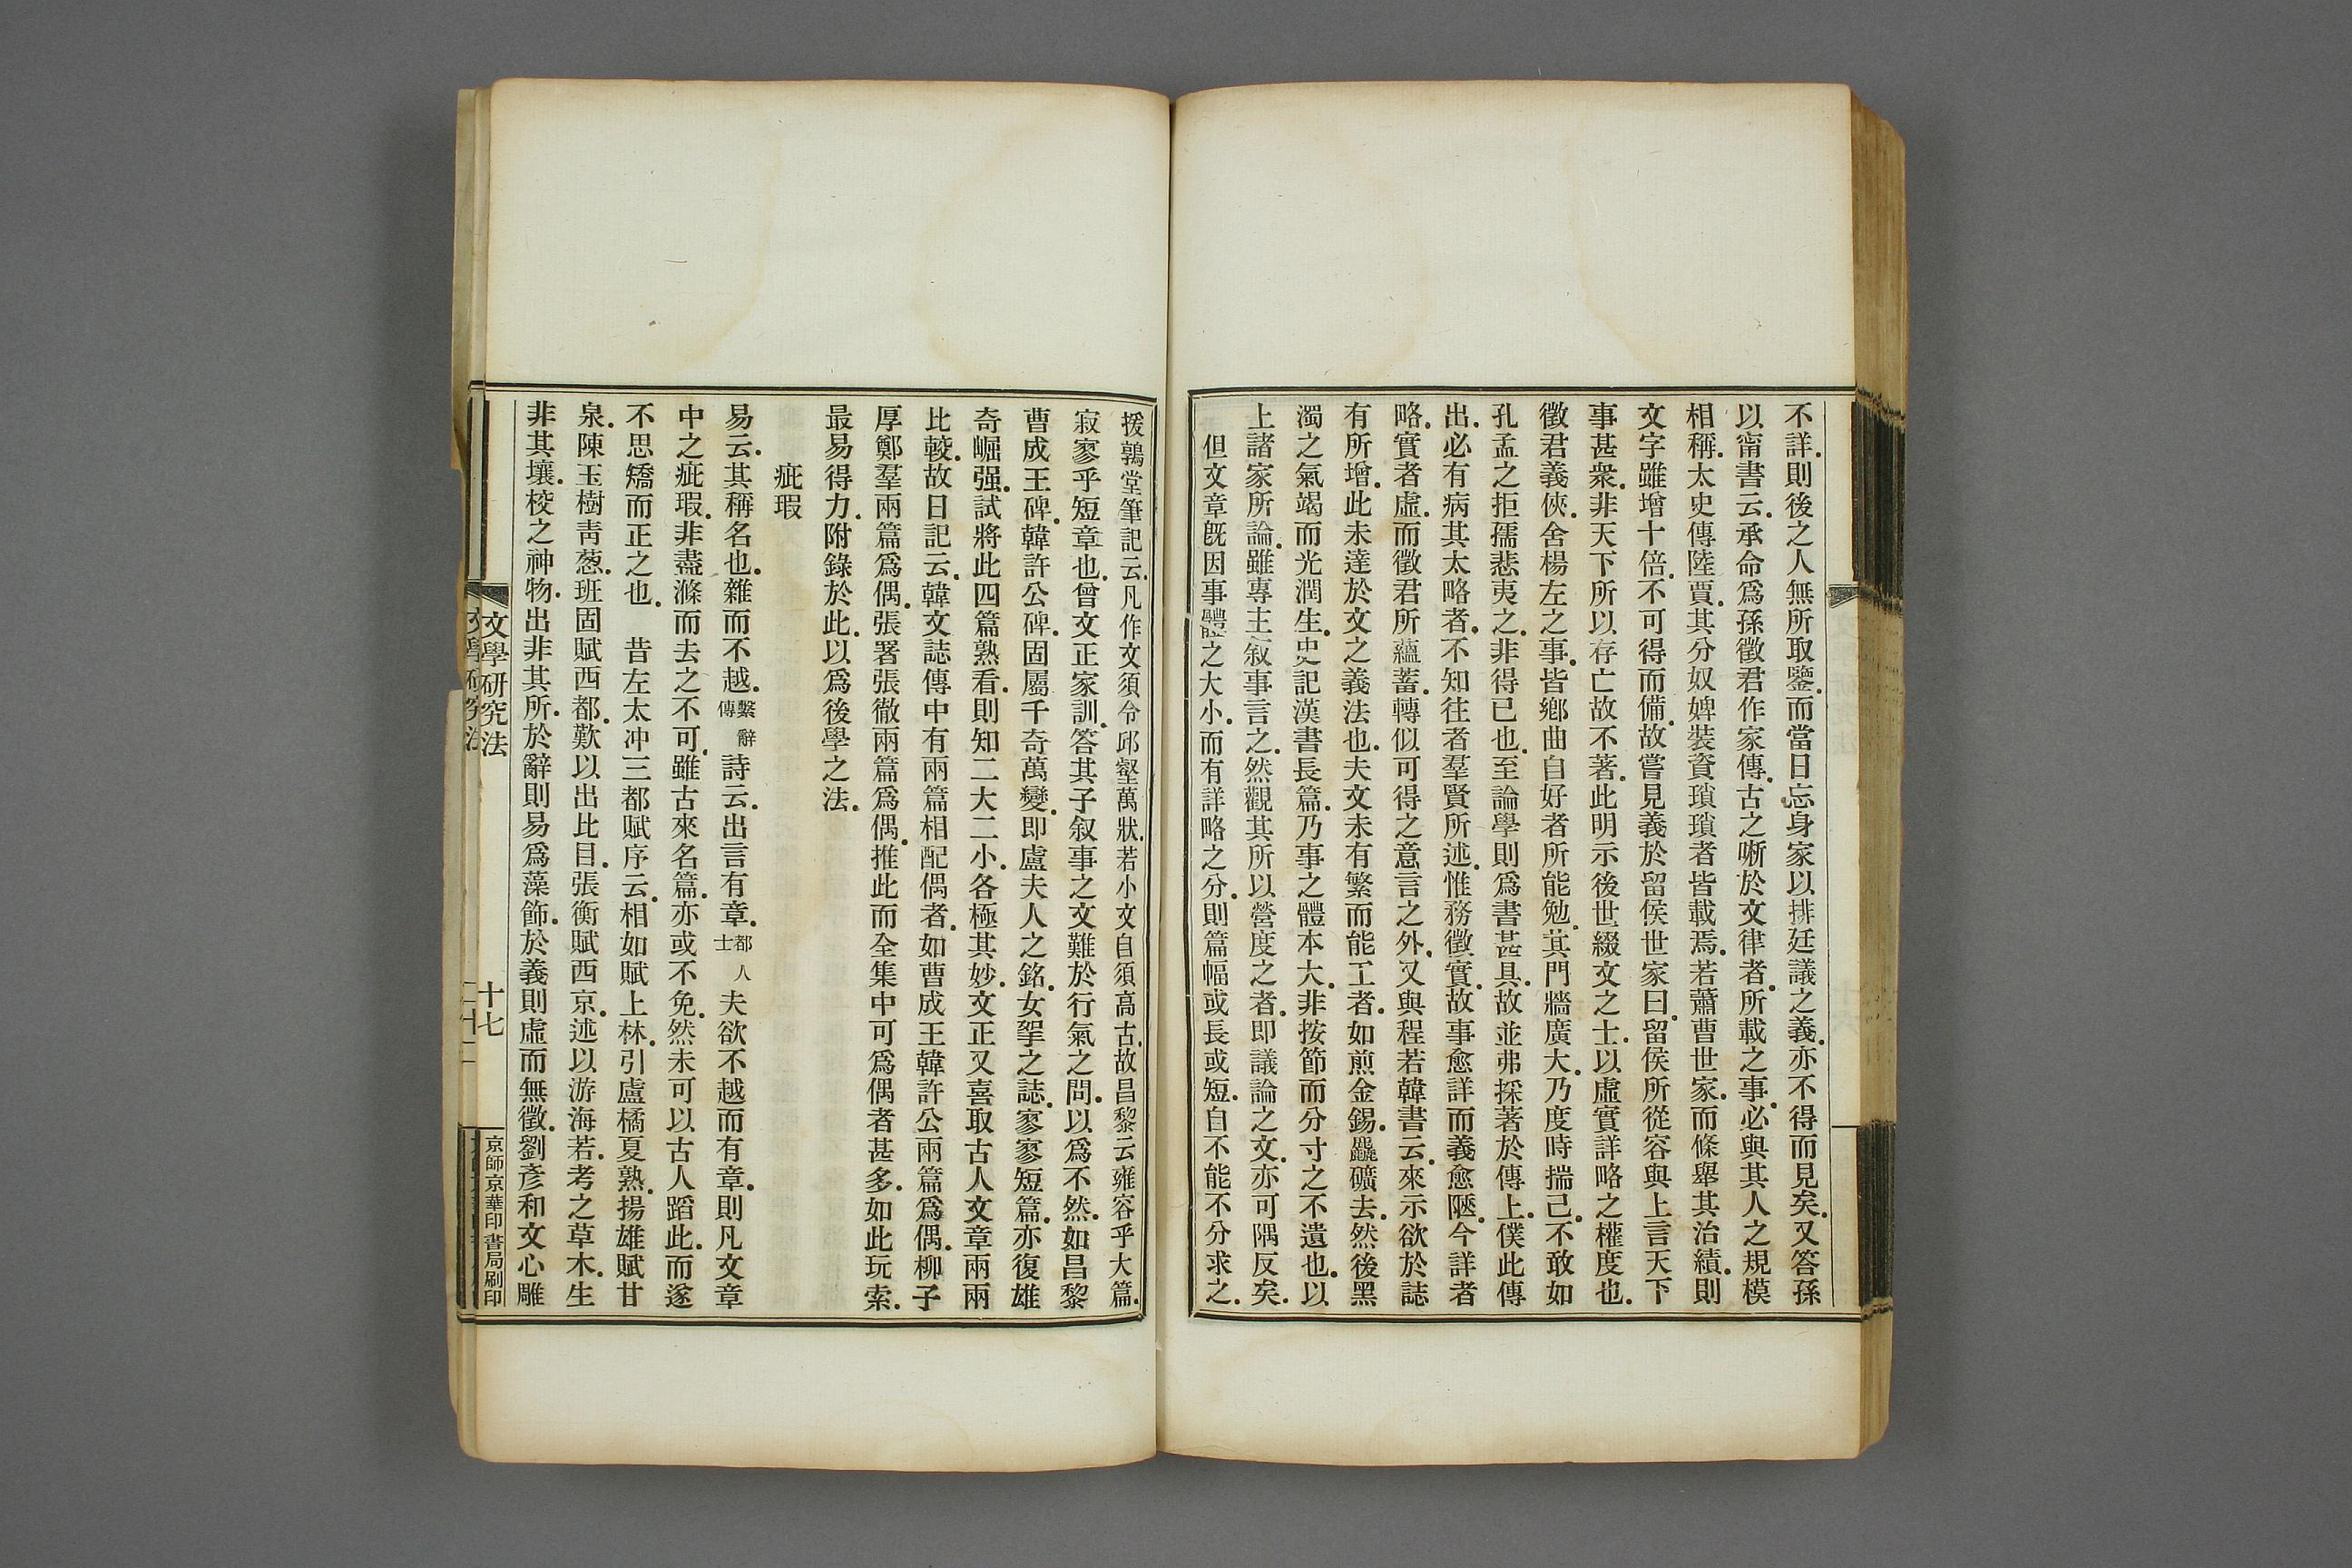 不詳.則後之人無所取鑒.而當日忘身家以排廷議之義.亦不得而見矣.又答孫
以甯書云.承命爲孫徵君作家傳.古之晰於文律者.所載之事.必與其人之規模
相稱.太史傳陸賈.其分奴婢裝資瑣瑣者皆載焉.若蕭曹世家.而條舉其治績.則
文字雖增十倍.不可得而備.故嘗見義於留侯世家曰.留侯所從容與上言天下
事甚衆.非天下所以存亡故不著.此明示後世綴文之士.以虛實詳略之權度也.
徵君義俠.舍楊左之事.皆鄉曲自好者所能勉.其門牆廣大.乃度時揣己.不敢如
孔孟之拒孺悲夷之.非得已也.至論學則爲書甚具.故並弗採著於傳上.僕此傳
出.必有病其太略者.不知往者羣賢所述.惟務徵實.故事愈詳而義愈陋.今詳者
略.實者虛.而徵君所蘊蓄.轉似可得之意言之外.又與程若韓書云.來示欲於誌
有所增.此未達於文之義法也.夫文未有繁而能工者.如煎金錫.麤礦去.然後黑
濁之氣竭而光潤生.史記漢書長篇.乃事之體本大.非按節而分寸之不遺也.以
上諸家所論.雖專主叙事言之.然觀其所以營度之者.即議論之文.亦可隅反矣.
但文章旣因事體之大小.而有詳略之分.則篇幅或長或短.自不能不分求之.
援鶉堂筆記云.凡作文須令邱壑萬狀.若小文自須高古.故昌黎云雍容乎大篇.
寂寥乎短章也.曾文正家訓.答其子叙事之文難於行氣之問.以爲不然.如昌黎
曹成王碑.韓許公碑.固屬千奇萬變.即盧夫人之銘.女挐之誌.寥寥短篇.亦復雄
奇崛强.試將此四篇熟看.則知二大二小.各極其妙.文正又喜取古人文章兩兩
比較.故日記云.韓文誌傳中有兩篇相配偶者.如曹成王韓許公兩篇爲偶.柳子
厚鄭羣兩篇爲偶.張署張徹兩篇爲偶.推此而全集中可爲偶者甚多.如此玩索.
最易得力.附錄於此.以爲後學之法.
疵瑕
易云.其稱名也.雜而不越.繫辭傳詩云.出言有章.都人士夫欲不越而有章.則凡文章
中之疵瑕.非盡滌而去之不可.雖古來名篇.亦或不免.然未可以古人蹈此.而遂
不思矯而正之也.昔左太冲三都賦序云.相如賦上林.引盧橘夏熟.揚雄賦甘
泉.陳玉樹靑葱.班固賦西都.歎以出比目.張衡賦西京.述以游海若.考之草木.生
非其壤.校之神物.出非其所.於辭則易爲藻飾.於義則虛而無徵.劉彥和文心雕
文學研究法
十七
京師京華印書局刷印